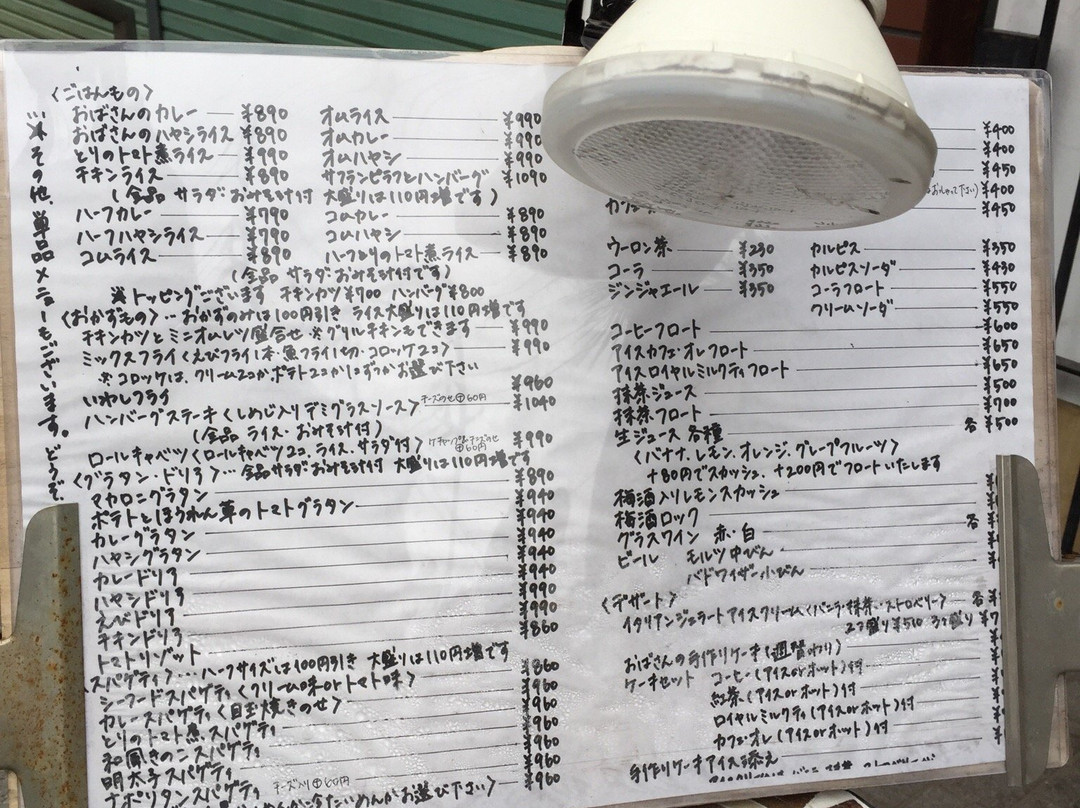 〈ごはんもの〉
おばさんのカレー ¥890
おばさんのハヤシライス ¥890
とりのトマト煮ライス ¥990
チキンライス ¥890
オムライス ¥990
オムカレー ¥990
オムハヤシ ¥990
サフランピラフとハンバーグ ¥1090
(全品 サラダ・おみそ汁付 大盛りは110円増です)
ハーフカレー ¥790
ハーフハヤシライス ¥790
コムライス ¥890
コムカレー ¥890
コムハヤシ ¥890
ハーフとりのトマト煮ライス ¥890
(全品 サラダ・おみそ汁付です)
※トッピングございます チキンカツ¥700 ハンバーグ¥800
〈おかずもの〉‥おかずのみは100円引き ライス大盛りは110円増です
チキンカツとミニオムレツ盛合せ ※グリルチキンもできます ¥990
ミックスフライ〈えびフライ1本・魚フライ1切・コロッケ2コ〉 ¥990
※コロッケは、クリーム2コか、ポテト2コか1コずつかお選び下さい
いわしフライ ¥960
ハンバーグステーキ〈しめじ入りデミグラスソース〉 チーズのせ⊕60円 ¥1040
(全品 ライス・おみそ汁付)
ロールキャベツ〈ロールキャベツ2コ、ライス、サラダ付〉 ¥990
〈グラタン・ドリア〉… 全品サラダおみそ汁付 大盛りは110円増です
マカロニグラタン ¥890
ポテトとほうれん草のトマトグラタン ¥940
カレーグラタン ¥940
ハヤシグラタン ¥940
カレードリア ¥940
ハヤシドリア ¥940
えびドリア ¥990
チキンドリア ¥990
トマトリゾット ¥860
スパゲティ〉… ハーフサイズは100円引き 大盛りは110円増です
シーフードスパゲティ〈クリーム味orトマト味〉 ¥860
カレースパゲティ〈目玉焼きのせ〉 ¥960
とりのトマト煮スパゲティ ¥960
和風きのこスパゲティ ¥960
明太子スパゲティ ¥960
ナポリタンスパゲティ チーズ入り⊕60円 ¥960
※その他、単品メニューもございます。どうぞ
¥400
¥400
¥450
¥400
¥450
ウーロン茶 ¥230
コーラ ¥350
ジンジャエール ¥350
カルピス ¥350
カルピスソーダ ¥430
コーラフロート ¥550
クリームソーダ ¥550
コーヒーフロート ¥600
アイスカフェ・オレフロート ¥650
アイスロイヤルミルクティフロート ¥650
抹茶ジュース ¥500
抹茶フロート ¥700
生ジュース 各種 各 ¥500
〈バナナ、レモン、オレンジ、グレープフルーツ〉
+80円でスカッシュ、+200円でフロートいたします
梅酒入りレモンスカッシュ
梅酒ロック
グラスワイン 赤・白 各
ビール モルツ中びん
バドワイザー小びん
〈デザート〉
イタリアンジェラートアイスクリーム〈バニラ・抹茶・ストロベリー〉 各
2コ盛り¥510 3コ盛り ¥7
おばさんの手作りケーキ(週替わり)
ケーキセット コーヒー(アイスorホット)付
紅茶(アイスorホット)付
ロイヤルミルクティ(アイスorホット)付
カフェ・オレ(アイスorホット)付
手作りケーキアイス添え